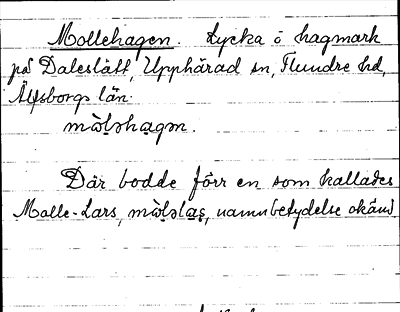 Mollehagen. Lycka i hagmark
på Daleslätt, Upphärad sn, Flundre hd,
Älfsborgs län.
mòləhagən.
Där bodde förr en som kallades
Molle-Lars, mòləlaʂ, namnbetydelse okänd.